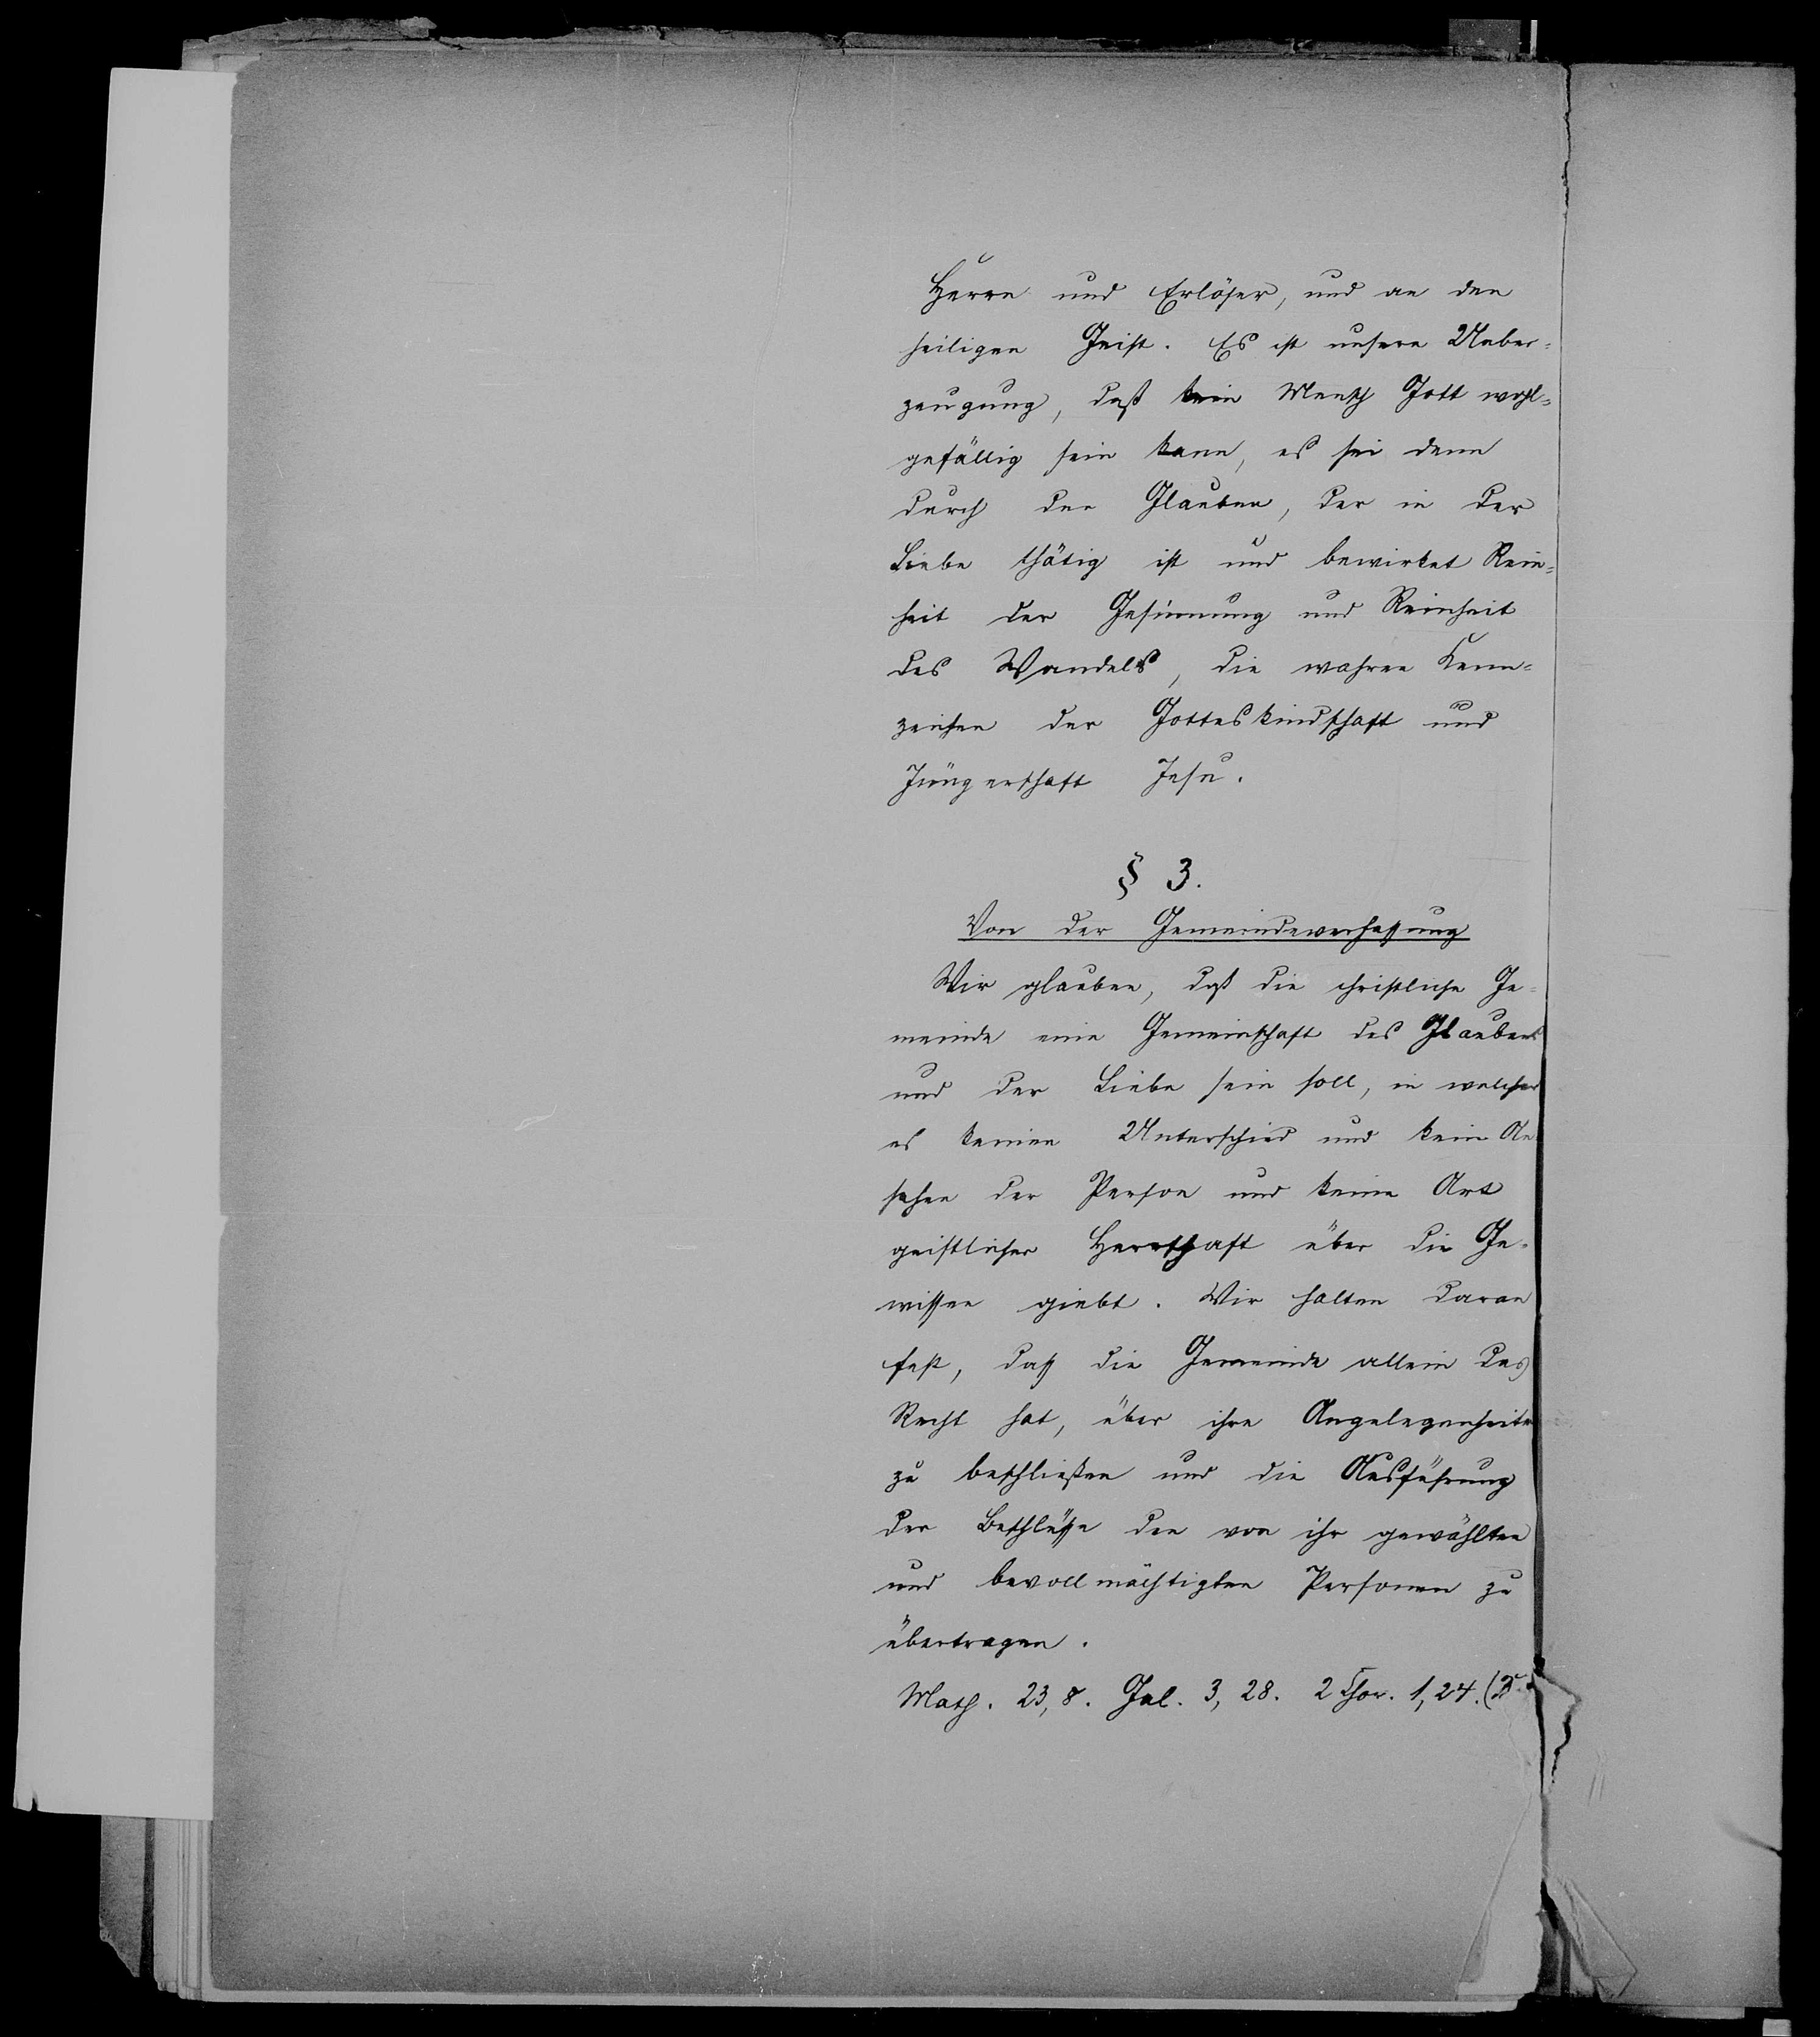 Herrn und Erlöser, und an den
heiligen Geist. Es ist unsere Ueber-
zeugung, daß kein Mensch Gott wohl-
gefällig sein kann, es sei denn
durch den Glauben, der in der
Liebe thätig ist und bewirket Rein-
heit der Gesinnung und Reinheit
des Wandels, die wahren Kenn-
zeichen der Gotteskindschaft und
Jüngerschaft Jesu.
§ 3.
Von der Gemeindeverfassung
Wir glauben, daß die christliche Ge-
meinde eine Gemeinschaft des Glaubens
und der Liebe sein soll, in welcher
es keinen Unterschied und kein An-
sehen der Person und keine Art
geistlicher Herrschaft über die Ge-
wissen giebt. Wir halten daran
fest, dass die Gemeinde allein das
Recht hat, über ihre Angelegenheiten
zu beschließen und die Ausführung
der Beschlüsse den von ihr gewählten
und bevollmächtigten Personen zu
übertragen.
Math. 23, 8. Gal. 3, 28. 2 Chor. 1, 24.